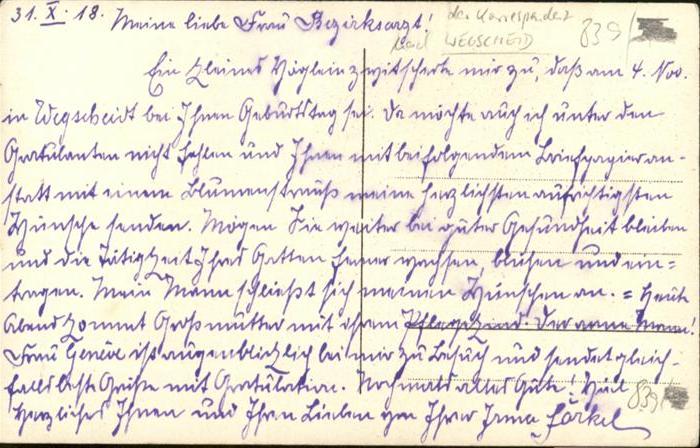 31. X. 18. Meine liebe Frau Bezirksarzt! der Korrespondenz
nach WEGSCHEID 839/
Ein kleines Vöglein zwitscherte mir zu, daß am 4. Nov.
in Wegscheidt bei Ihnen Geburtstag sei. Da möchte auch ich unter den
Gratulanten nicht fehlen und Ihnen mit beifolgendem Briefpapier an-
statt mit einem Blumenstrauß meine herzlichsten aufrichtigsten
Wünsche senden. Mögen Sie weiter bei guter Gesundheit bleiben
und die Tätigkeit Ihres Gatten ferner wachsen, blühen und ein-
tragen. Mein Mann schließt sich meinen Wünschen an. = Heute
Abend kommt Großmutter mit ihrem Pflegekind. Der arme Mann!
Frau ist augenblicklich bei mir zu Besuch und sendet gleich-
falls beste Grüße mit Gratulation. Nochmals alles Gute! Viel 839
Herzliches Ihnen und Ihren Lieben von Ihrer Irma